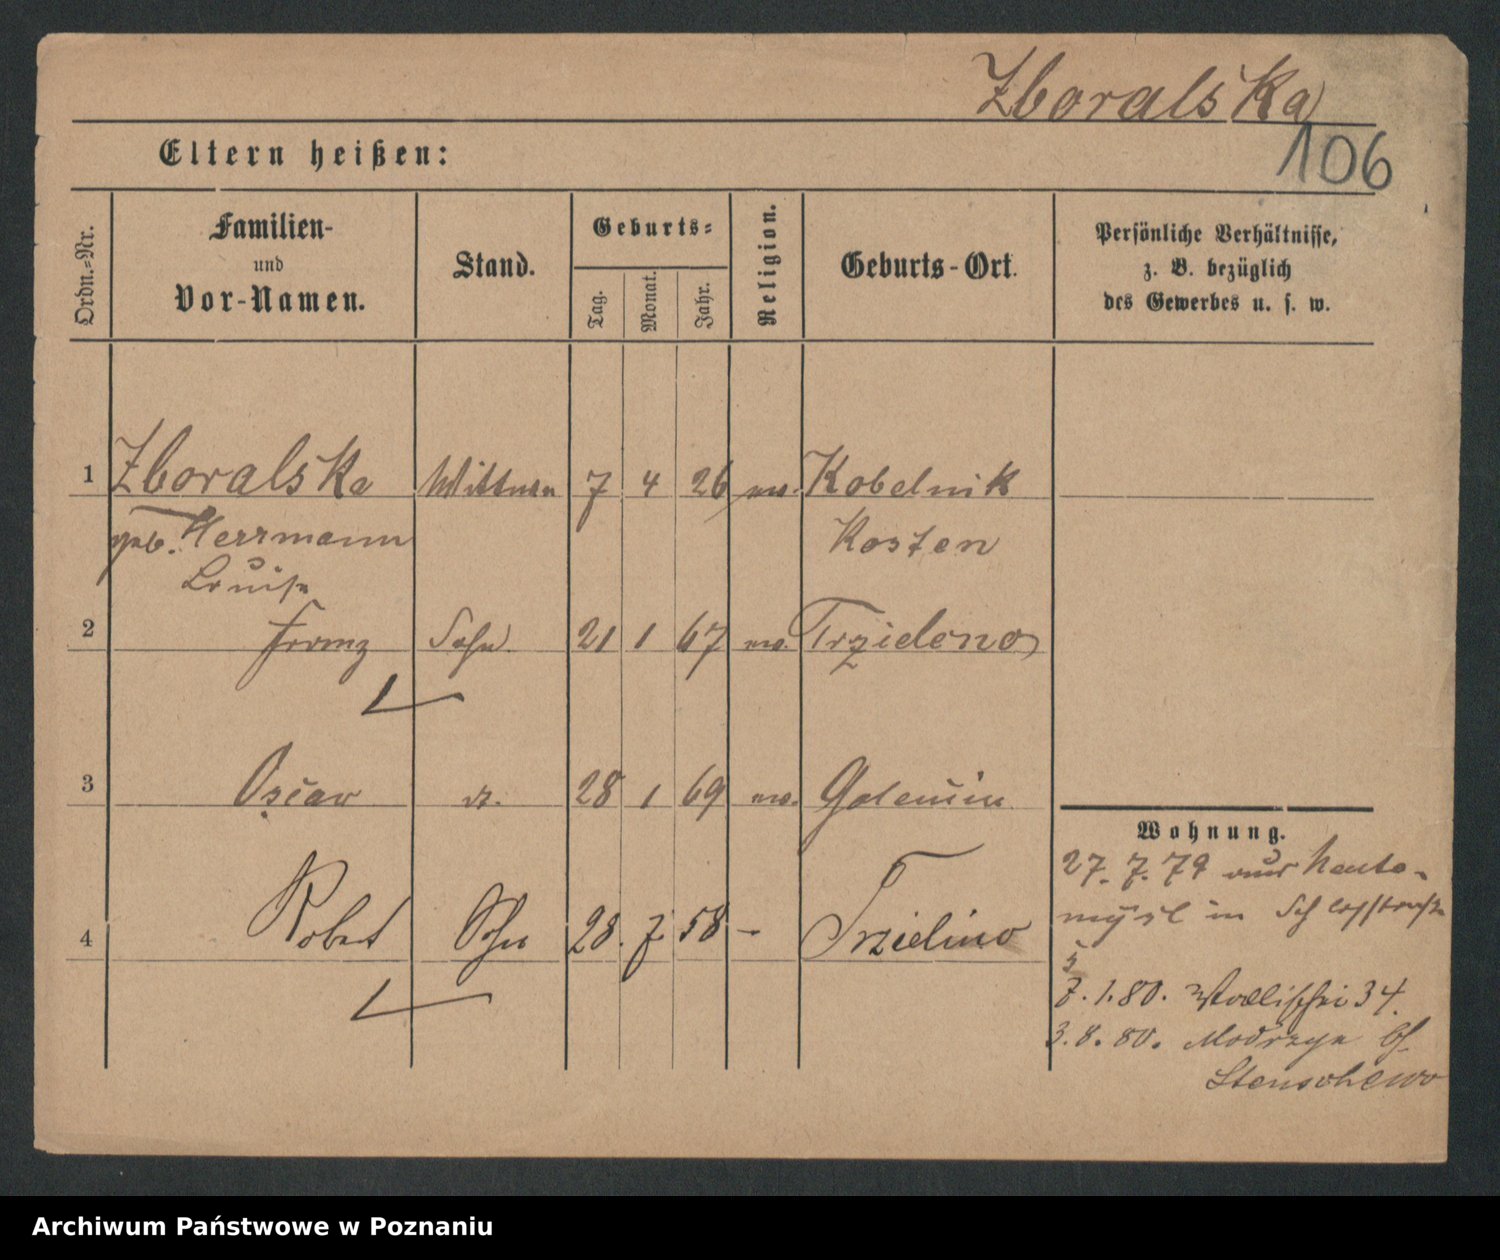 Zboralska
106
Eltern heißen:
Ordn.-Nr.
Familien-
und
Vor-Namen.
Stand.
Geburts-
Tag.
Monat.
Jahr.
Religion.
Geburts-Ort.
Persönliche Verhältnisse,
z. B. bezüglich
des Gewerbes u. s. w.
1 Zboralska Wittwe 7 4 26 Kobelnik
geb. Herrmann Kosten
Louise
2 Franz Sohn 21 1 67 Trzieleno
3 Oscar 28 1 69
4 Robert Sohn 28. 7 58 - Trzielino
Wohnung.
27. 7. 79 aus Neuto-
mysl in Schlossstraße
5
7. 1. 80. Wallischei 34.
3. 8. 80. Modrzyn b/
Stenschewo
Archiwum Państwowe w Poznaniu